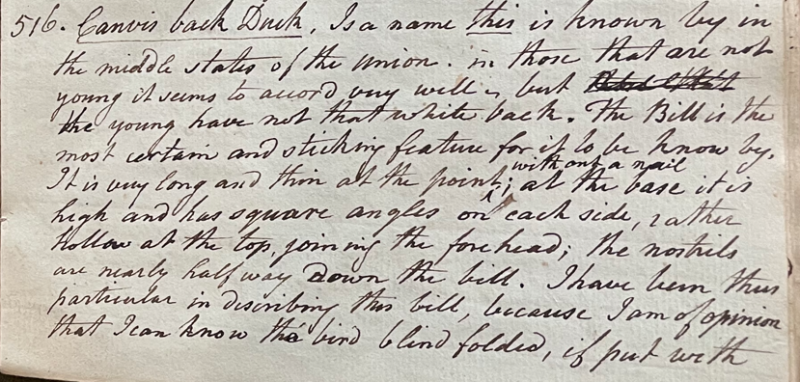 516. Canvis back Duck, Is a name this is known by in
the middle states of the union. in those that are not
young it seems to accord very well, but
the young have not that white back. The Bill is the
most certain and sticking feature for it to be know by.
It is very long and thin at the point; without a nail at the base it is
high and has square angles on each side, rather
hollow at the top, joining the forehead; the nostrils
are nearly half way down the bill. I have been thus
particular in discribing this bill, because I am of opinion
that I can know the bird blind folded, if put with